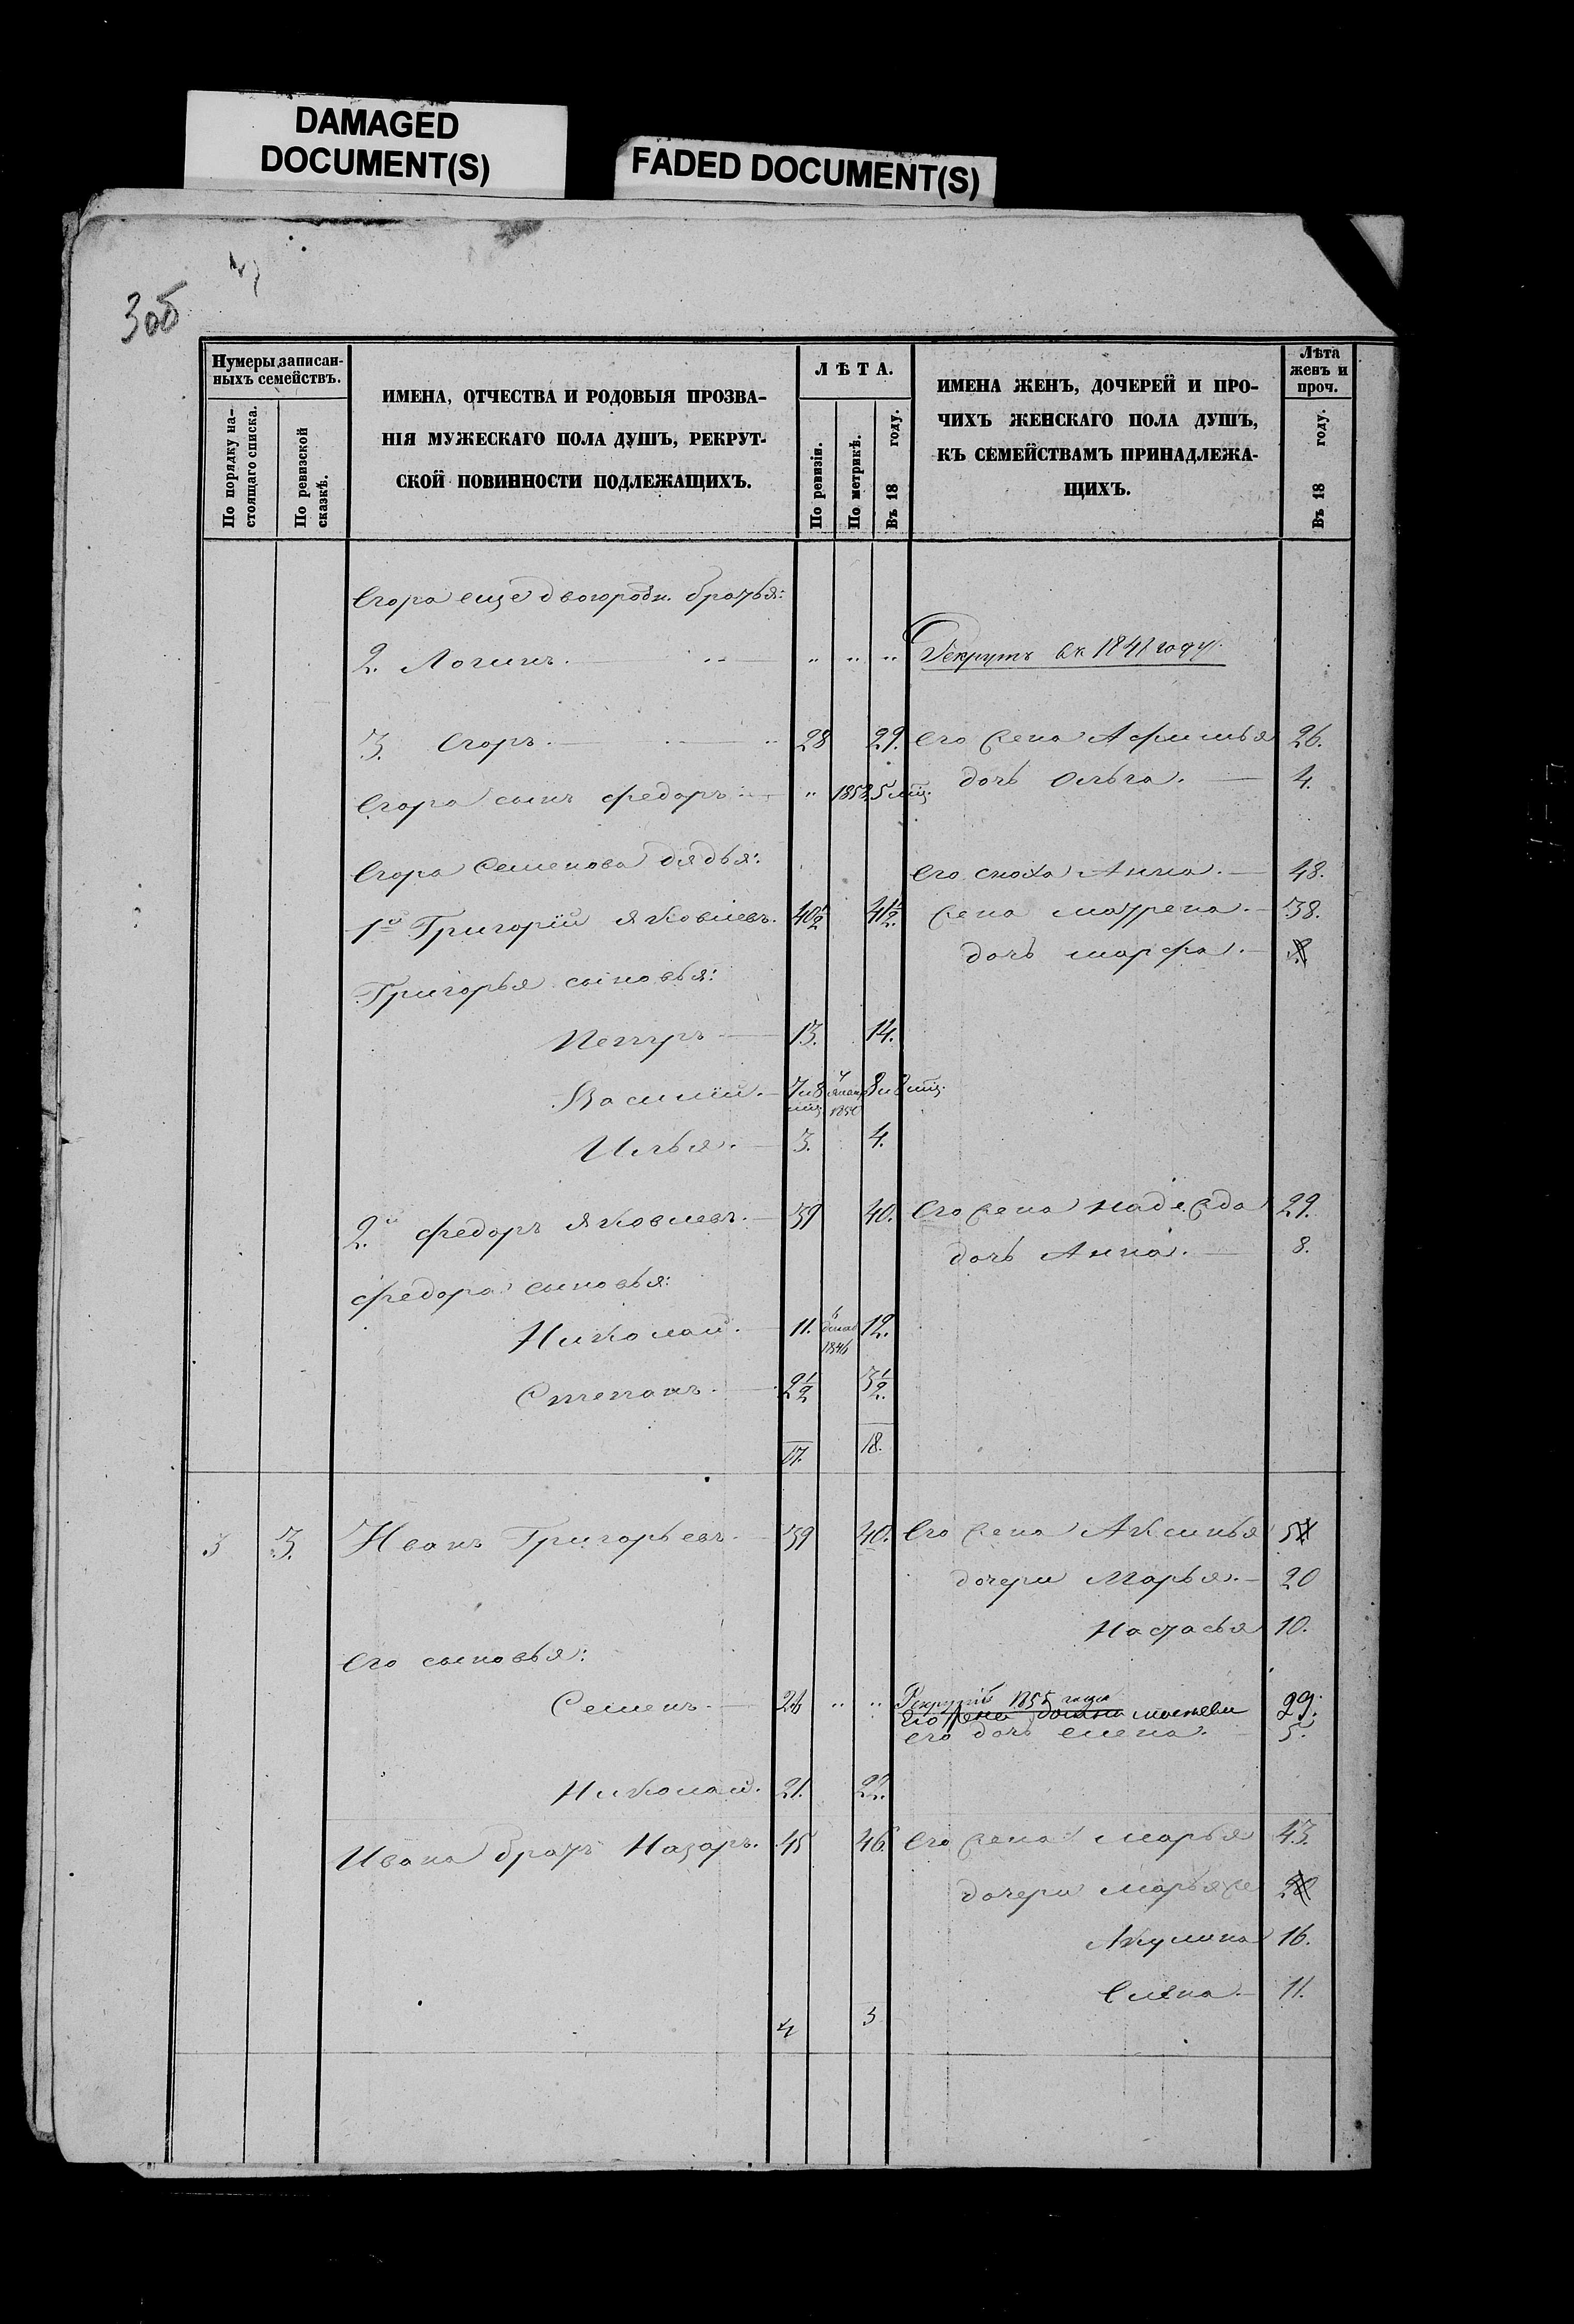 DAMAGED
DOCUMENT(S)
FADED DOCUMENT(S)
Нумеры записан-
ныхъ семействъ.
По порядку на-
стоящаго списка.
По ревизской
сказкѣ.
ИМЕНА, ОТЧЕСТВА И РОДОВЫЯ ПРОЗВА-
НІЯ МУЖЕСКАГО ПОЛА ДУШЪ, РЕКРУТ-
СКОЙ ПОВИННОСТИ ПОДЛЕЖАЩИХЪ.
ЛѢТА.
По ревизіи.
По метрикѣ.
Въ 18 году.
ИМЕНА ЖЕНЪ, ДОЧЕРЕЙ И ПРО-
ЧИХЪ ЖЕНСКАГО ПОЛА ДУШЪ,
КЪ СЕМЕЙСТВАМЪ ПРИНАДЛЕЖА-
ЩИХЪ.
Лѣта
женъ и
проч.
Въ 18 году.
Егора еще двоюродн. братья:
2. Логинъ. " " " Рекрутъ въ 1841 году.
3. Егоръ. 28 29. Его жена Афимья 26.
дочь Ольга. 4.
Егора сынъ Федоръ " 1858. 5 мѣс.
Егора Семенова дядья:
Его сноха Анна. 48.
1й Григорій Яковлевъ. 40½ 41½. жена Матрена. 38.
дочь Марфа.
Григорья сыновья:
Петръ 13. 14.
Василій. 7 и 8 мѣс. 1850 8 и 8 мѣс.
Илья. 3. 4.
2й Федоръ Яковлевъ. 39 40. Его жена Надежда 29.
дочь Анна. 8.
Федора сыновья:
Николай. 11. 6 декаб 1846 12.
Степанъ. 2½ 3½.
17. 18.
3 3. Иванъ Григорьевъ. 39 40. Его жена Аксинья
дочери Марья. 20
Настасья 10.
Его сыновья:
Семенъ. 26 " " Рекрутъ 1855 года
Его жена 29.
его дочь Елена. 5.
Николай. 21. 22.
Ивана братъ Назаръ. 45 46. Его жена Марья 43.
дочери Марья же
Акулина 16.
Елена. 11.
4 3